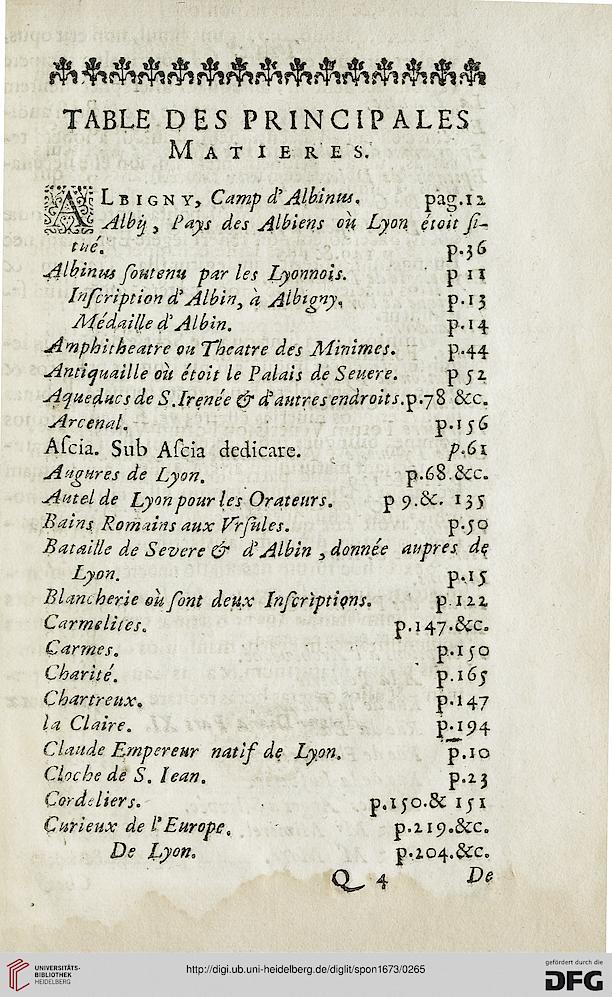 TABLE DES PRINCIPALES
MATIERES.
ALBIGNY, Camp d'Albinus. pag.12
Albij, Pays des Albiens où Lyon étoit ſi-
tué. p.36
Albinus ſoutenu par les Lyonnois. p 11
Inſcription d'Albin, à Albigny. p.13
Médaille d'Albin. p.14
Amphitheatre ou Theatre des Minimes. p.44
Antiquaille où étoit le Palais de Seuere. p 52
Aqueducs de S.Irenée & d'autres endroits. p.78 &c.
Arcenal. p.156
Aſcia. Sub Aſcia dedicare. p.61
Augures de Lyon. p.68.&c.
Autel de Lyon pour les Orateurs. p 9.&. 135
Bains Romains aux Vrſules. p.50
Bataille de Severe & d'Albin, donnée aupres de
Lyon. p.15
Blancherie où ſont deux Inſcriptions. p 122
Carmelites. p.147.&c.
Carmes. p.150
Charité. p.165
Chartreux. p.147
la Claire. p.194
Claude Empereur natif de Lyon. p.10
Cloche de S. Iean. p.23
Cordeliers. p.150.& 151
Curieux de l'Europe. p.219.&c.
De Lyon. p.204.&c.
Q 4 De
UNIVERSITÄTS-
BIBLIOTHEK
HEIDELBERG
http://digi.ub.uni-heidelberg.de/diglit/spon1673/0265
gefördert durch die
DFG